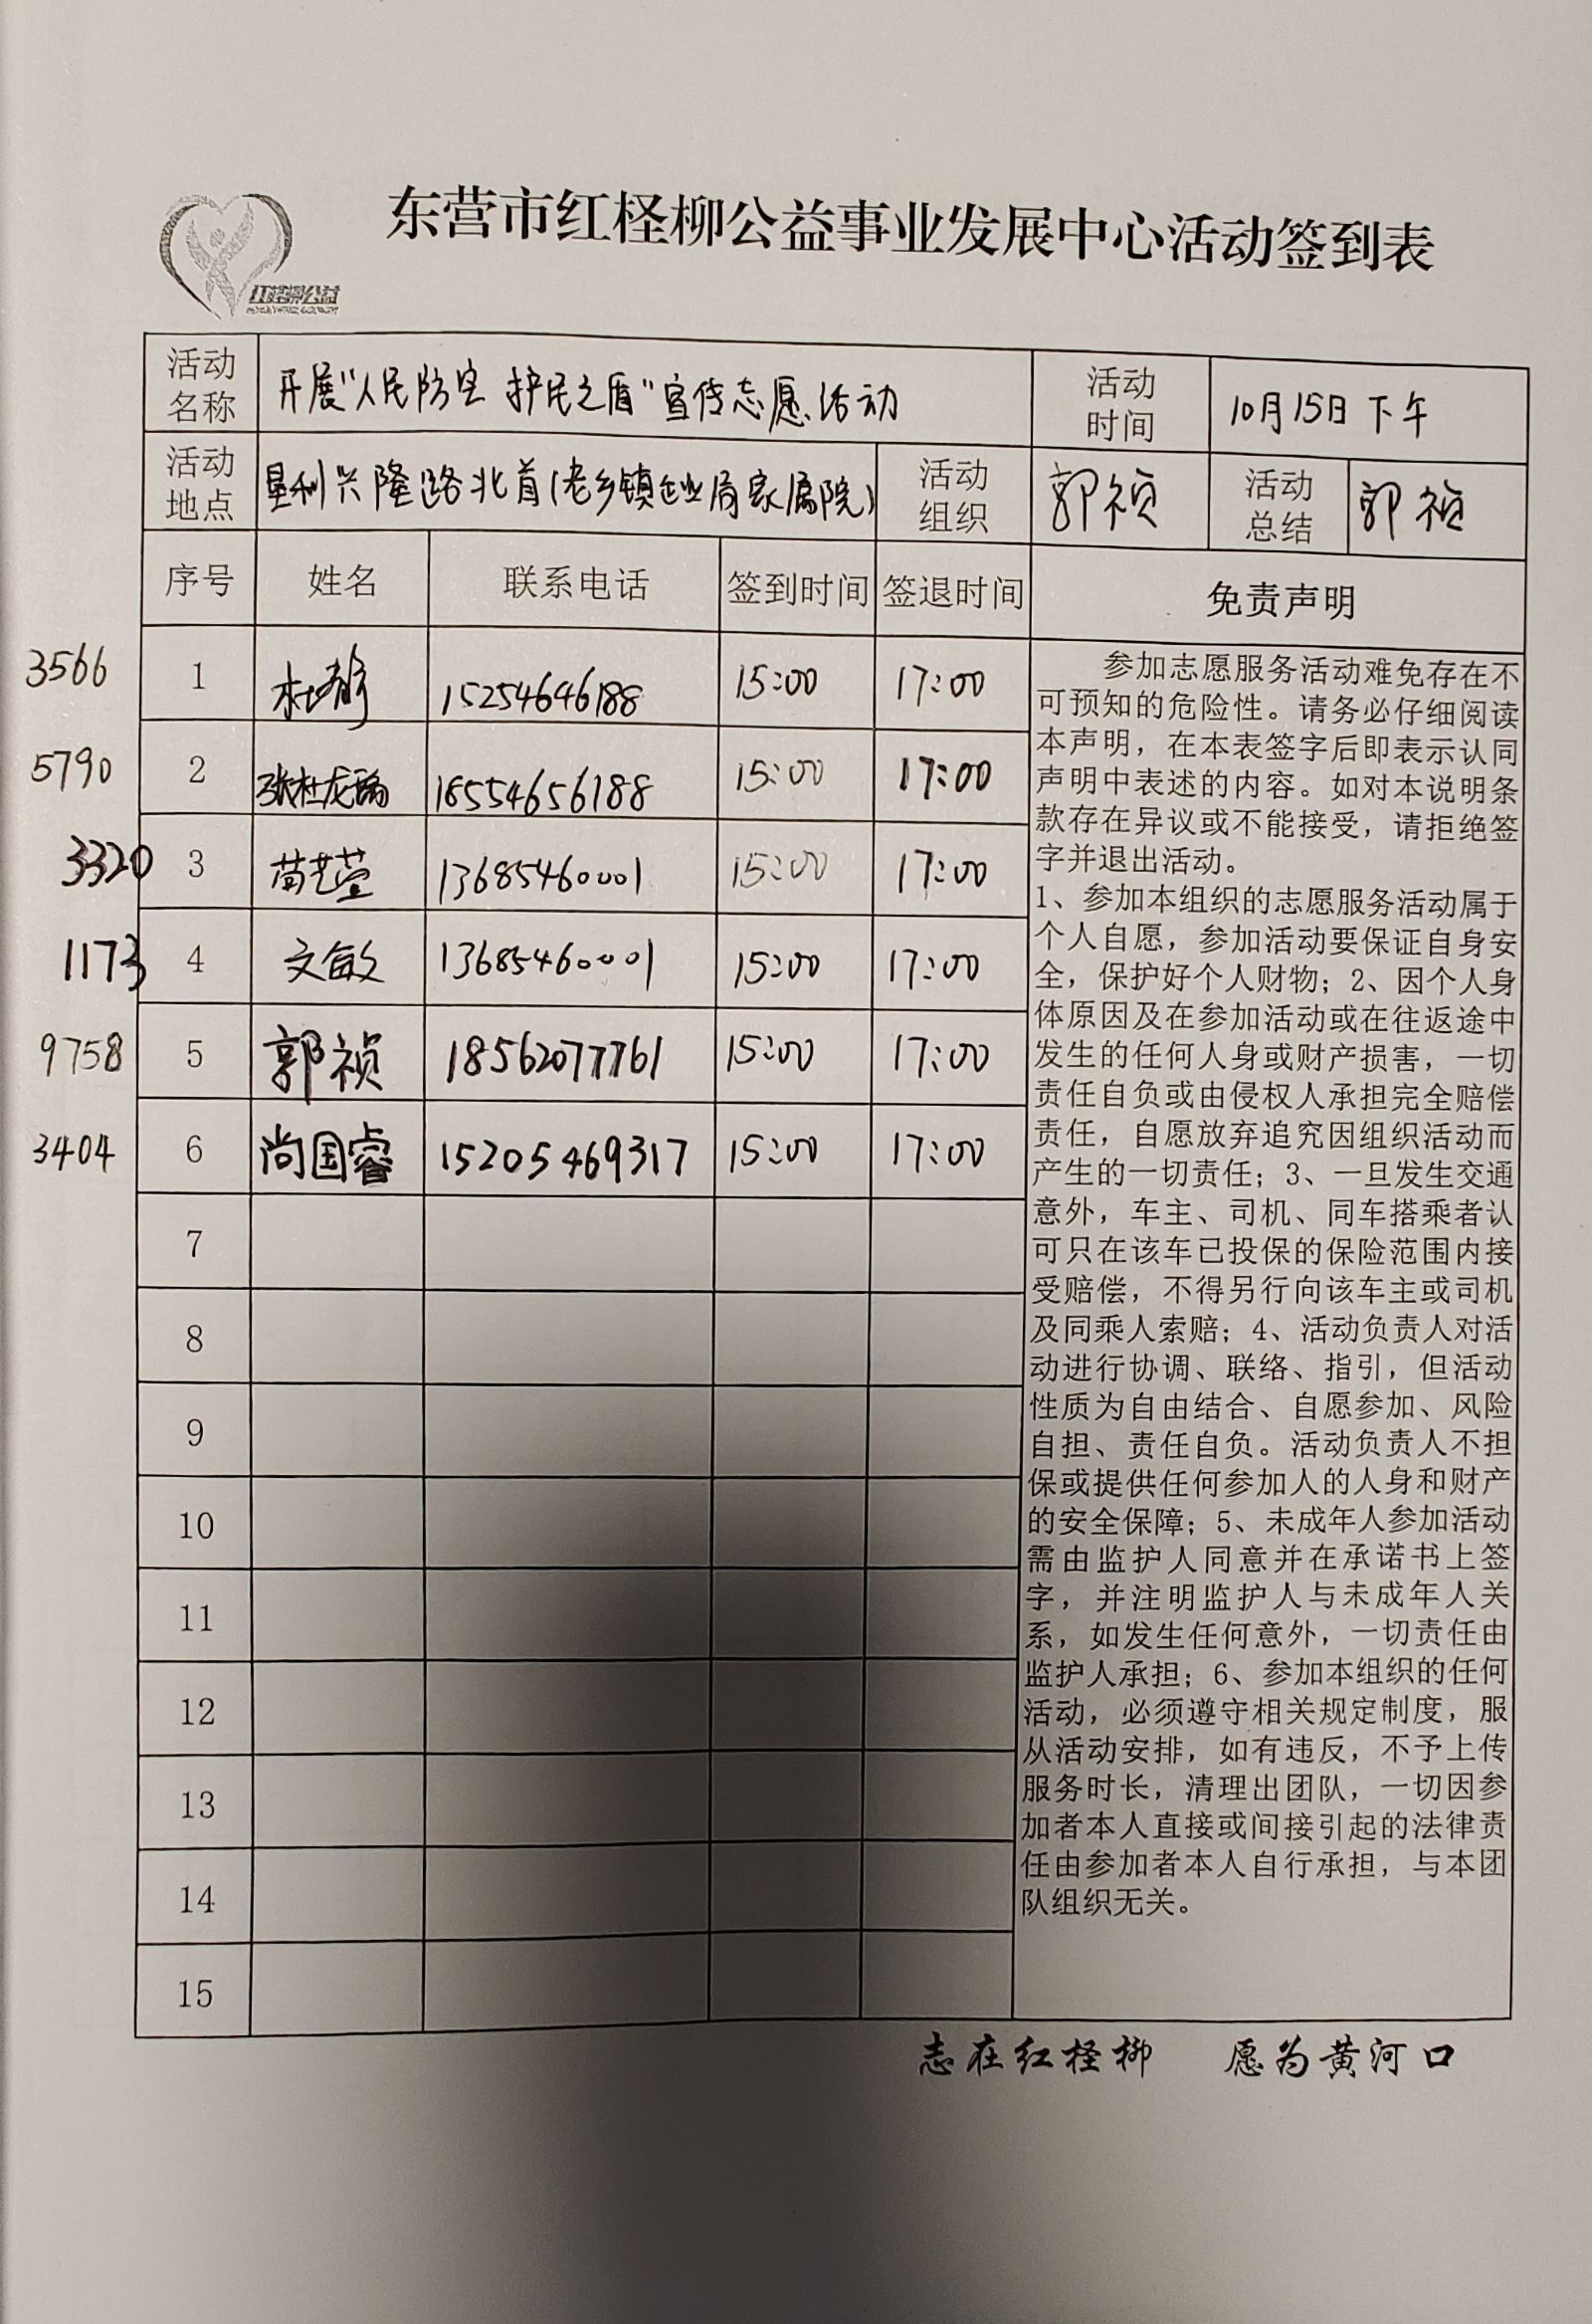 东营市红柽柳公益事业发展中心活动签到表
红柽柳公益
活动名称 开展“人民防空 护民之盾”宣传志愿活动 活动时间 10月15日下午
活动地点 垦利兴隆路北首(老乡镇企业局家属院) 活动组织 郭祯 活动总结 郭祯
序号 姓名 联系电话 签到时间 签退时间 免责声明
3566 1 杜静 15254646188 15:00 17:00
5790 2 张杜龙 18554656188 15:00 17:00
3320 3 苗艺萱 13685460001 15:00 17:00
1173 4 文敏 13685460001 15:00 17:00
9758 5 郭祯 18562077761 15:00 17:00
3404 6 尚国睿 15205469317 15:00 17:00
7
8
9
10
11
12
13
14
15
参加志愿服务活动难免存在不
可预知的危险性。请务必仔细阅读
本声明，在本表签字后即表示认同
声明中表述的内容。如对本说明条
款存在异议或不能接受，请拒绝签
字并退出活动。
1、参加本组织的志愿服务活动属于
个人自愿，参加活动要保证自身安
全，保护好个人财物；2、因个人身
体原因及在参加活动或在往返途中
发生的任何人身或财产损害，一切
责任自负或由侵权人承担完全赔偿
责任，自愿放弃追究因组织活动而
产生的一切责任；3、一旦发生交通
意外，车主、司机、同车搭乘者认
可只在该车已投保的保险范围内接
受赔偿，不得另行向该车主或司机
及同乘人索赔；4、活动负责人对活
动进行协调、联络、指引，但活动
性质为自由结合、自愿参加、风险
自担、责任自负。活动负责人不担
保或提供任何参加人的人身和财产
的安全保障；5、未成年人参加活动
需由监护人同意并在承诺书上签
字，并注明监护人与未成年人关
系，如发生任何意外，一切责任由
监护人承担；6、参加本组织的任何
活动，必须遵守相关规定制度，服
从活动安排，如有违反，不予上传
服务时长，清理出团队，一切因参
加者本人直接或间接引起的法律责
任由参加者本人自行承担，与本团
队组织无关。
志在红柽柳 愿为黄河口